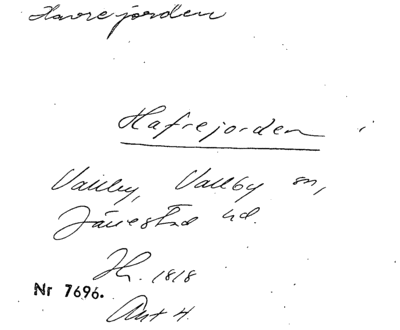 Havrejorden
Hafrejorden i
Vallby, Vallby sn,
Järrestad hd.
Hr. 1818
Nr 7696.
Akt 4.